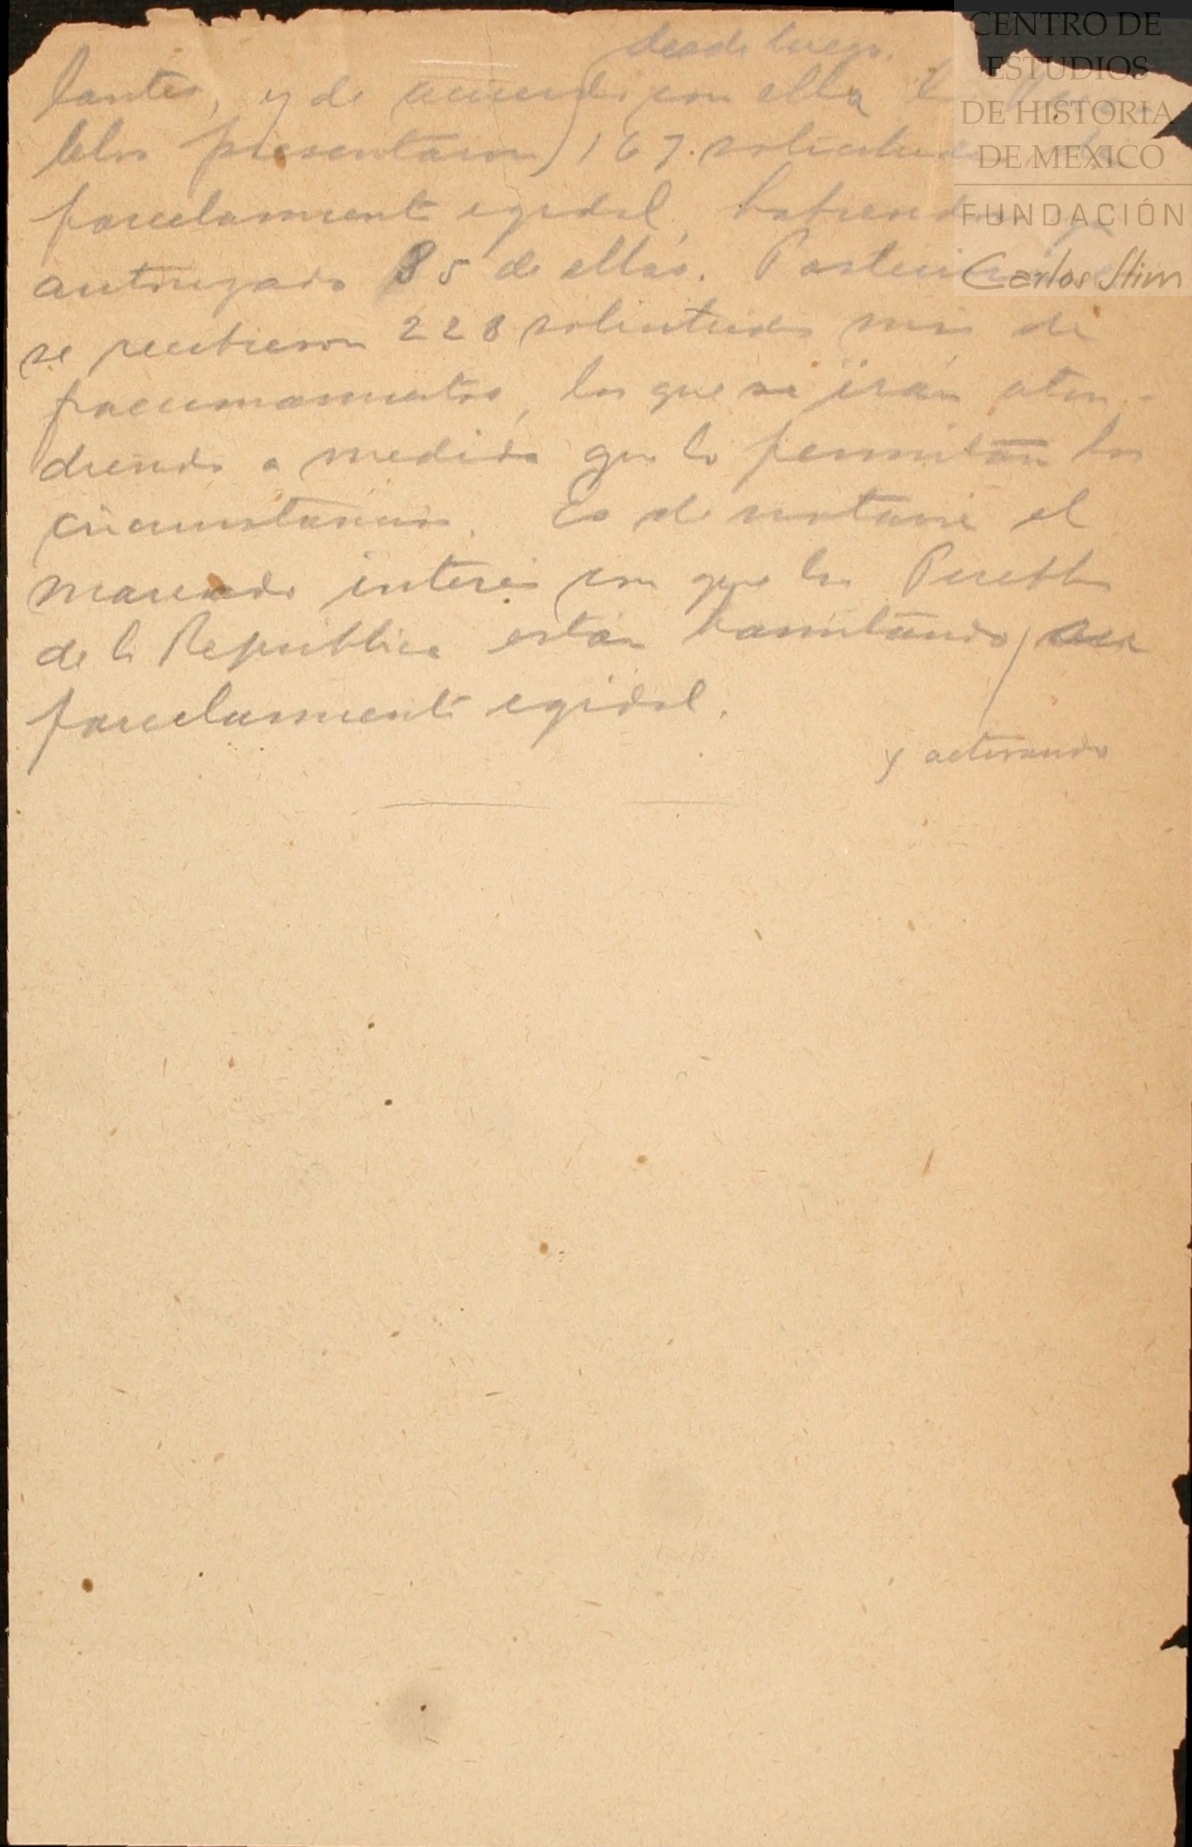 desde luego.
lantes, y de acuerdo con ella
blos presentaron 167. solicitudes
parcelamiento egidal, habiendo
autorizado 85 de ellas.
se recibieron 228 solicitudes mas de
fraccionamientos, los que se irán aten-
diendo a medida que lo permitan las
circunstancias. Es de notarse el
marcado interés con que los Pueblos
de la República están tramitando, su
parcelamiento egidal.
y activando
CENTRO DE
ESTUDIOS
DE HISTORIA
DE MEXICO
FUNDACIÓN
Carlos Slim